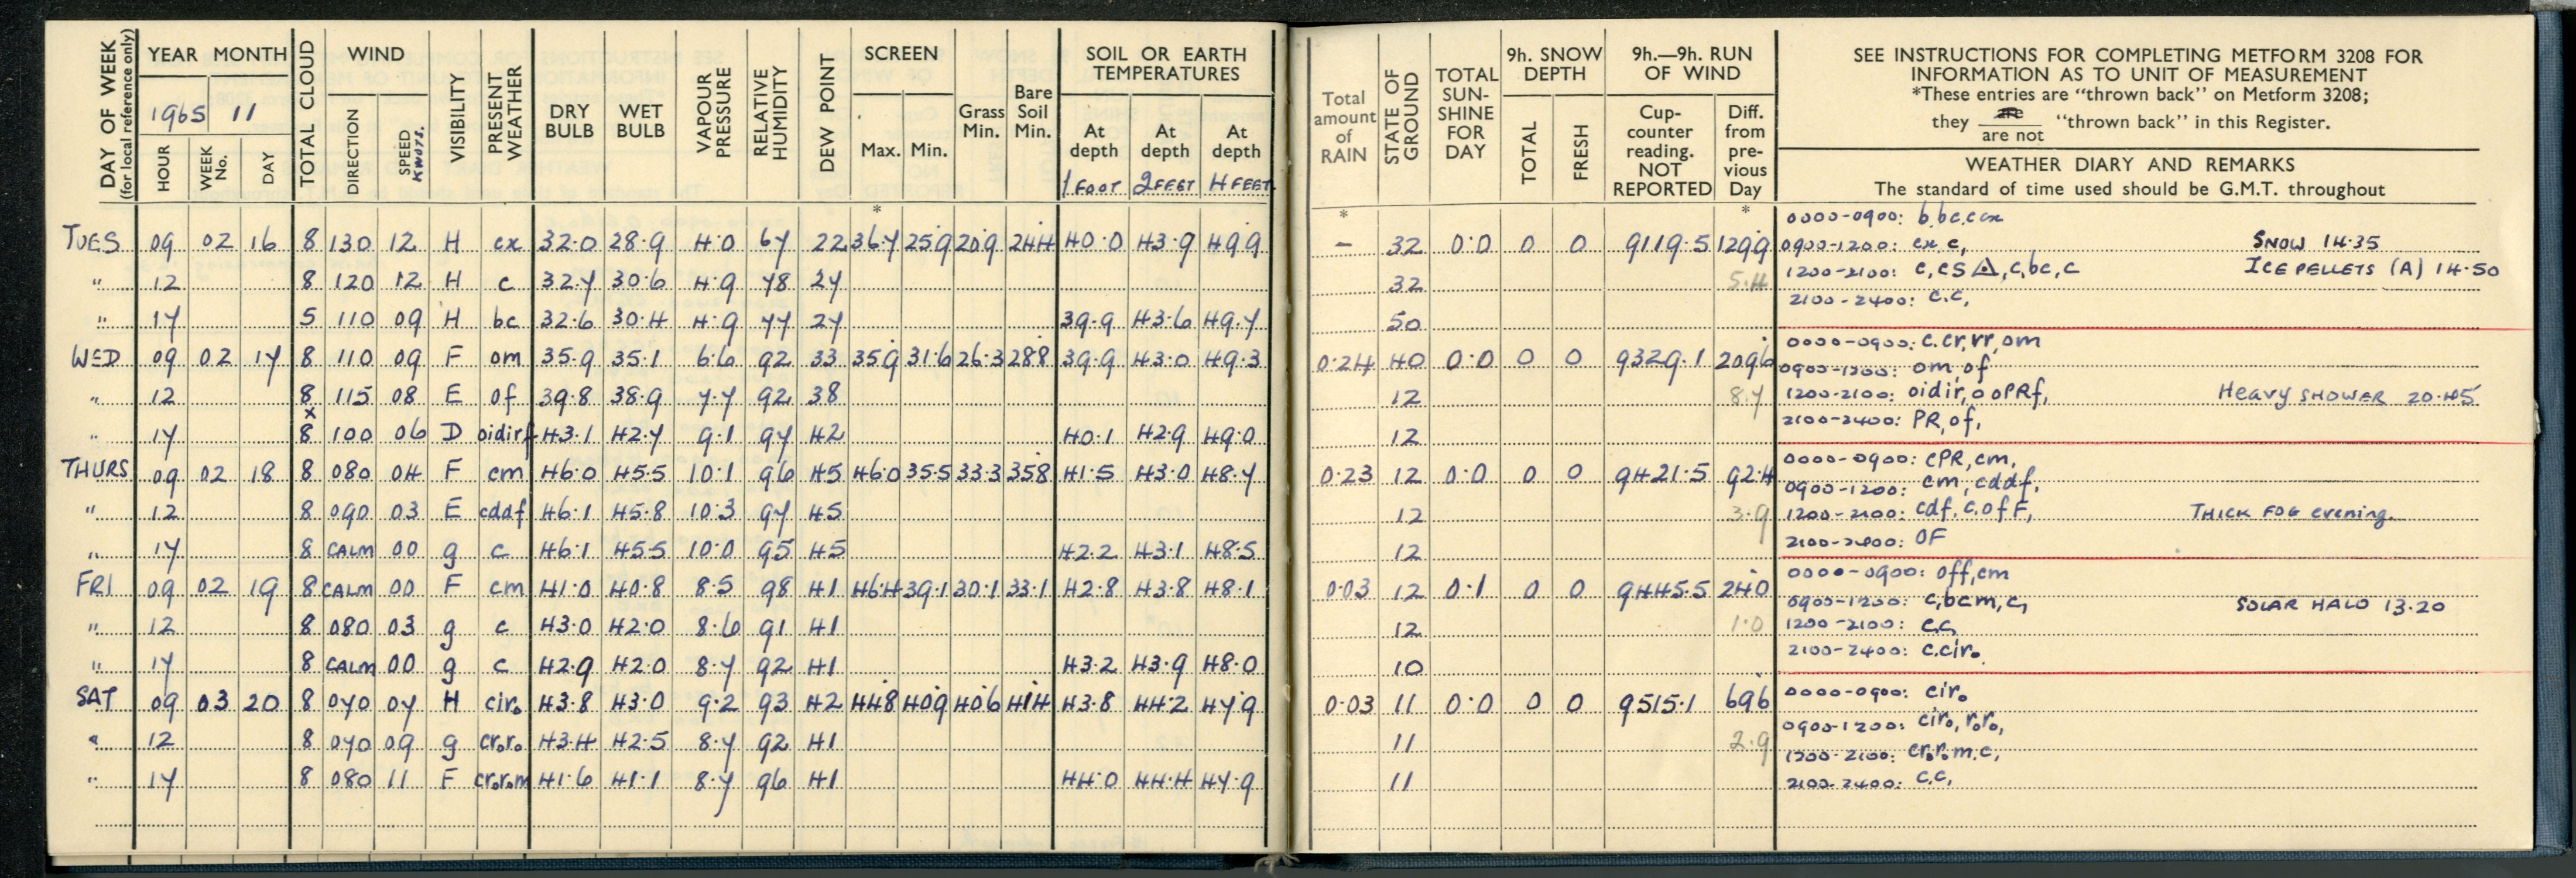 DAY OF WEEK (for local reference only) YEAR MONTH TOTAL CLOUD WIND VISIBILITY PRESENT WEATHER DRY BULB WET BULB VAPOUR PRESSURE RELATIVE HUMIDITY DEW POINT SCREEN Grass Min. Bare Soil Min. SOIL OR EARTH TEMPERATURES
1965 11
HOUR WEEK No. DAY DIRECTION SPEED KNOTS. Max. Min. At depth At depth At depth
1 FOOT 2 FEET 4 FEET
Total amount of RAIN STATE OF GROUND TOTAL SUN-SHINE FOR DAY 9h. SNOW DEPTH 9h.—9h. RUN OF WIND
TOTAL FRESH Cup-counter reading. NOT REPORTED Diff. from pre-vious Day
SEE INSTRUCTIONS FOR COMPLETING METFORM 3208 FOR
INFORMATION AS TO UNIT OF MEASUREMENT
*These entries are "thrown back" on Metform 3208;
they are / are not "thrown back" in this Register.
WEATHER DIARY AND REMARKS
The standard of time used should be G.M.T. throughout
* * *
TUES 09 02 16 8 130 12 H cx 32.0 28.9 4.0 67 22 36.7 25.9 20.9 24.4 40.0 43.9 49.9 – 32 0.0 0 0 9119.5 129.9
" 12 8 120 12 H c 32.7 30.6 4.9 78 27 32 5.4
" 17 5 110 09 H bc 32.6 30.4 4.9 77 27 39.9 43.6 49.7 50
0000-0900: b bc,c cx
0900-1200: cx c, SNOW 14.35
1200-2100: c, cs, c, bc, c ICE PELLETS (A) 14.50
2100-2400: c.c,
WED 09 02 17 8 110 09 F om 35.9 35.1 6.6 92 33 35.9 31.6 26.3 28.8 39.9 43.0 49.3 0.24 40 0.0 0 0 9329.1 209.6
" 12 8 115 08 E of 39.8 38.9 7.7 92 38 12 8.7
" 17 x 8 100 06 D oidirf 43.1 42.7 9.1 97 42 40.1 42.9 49.0 12
0000-0900: c.cr,rr,om
0900-1200: om of
1200-2100: oidir, o oPRf, Heavy SHOWER 20.45
2100-2400: PR, of,
THURS 09 02 18 8 080 04 F cm 46.0 45.5 10.1 96 45 46.0 35.5 33.3 35.8 41.5 43.0 48.7 0.23 12 0.0 0 0 9421.5 92.4
" 12 8 090 03 E cddf 46.1 45.8 10.3 97 45 12 3.9
" 17 8 CALM 00 g c 46.1 45.5 10.0 95 45 42.2 43.1 48.5 12
0000-0900: cPR, cm,
0900-1200: cm, cddf,
1200-2100: cdf, c.of F, THICK FOG evening.
2100-2400: OF
FRI 09 02 19 8 CALM 00 F cm 41.0 40.8 8.5 98 41 46.4 39.1 30.1 33.1 42.8 43.8 48.1 0.03 12 0.1 0 0 9445.5 24.0
" 12 8 080 03 g c 43.0 42.0 8.6 91 41 12 1.0
" 17 8 CALM 00 g c 42.9 42.0 8.7 92 41 43.2 43.9 48.0 10
0000-0900: off, cm
0900-1200: c, bcm, c, SOLAR HALO 13.20
1200-2100: c.c,
2100-2400: c.ciro
SAT 09 03 20 8 070 07 H ciro 43.8 43.0 9.2 93 42 44.8 40.9 40.6 41.4 43.8 44.2 47.9 0.03 11 0.0 0 0 9515.1 69.6
" 12 8 070 09 g croro 43.4 42.5 8.7 92 41 11 2.9
" 17 8 080 11 F crorom 41.6 41.1 8.7 96 41 44.0 44.4 47.9 11
0000-0900: ciro
0900-1200: ciro, roro,
1200-2100: croro m.c,
2100-2400: c.c,